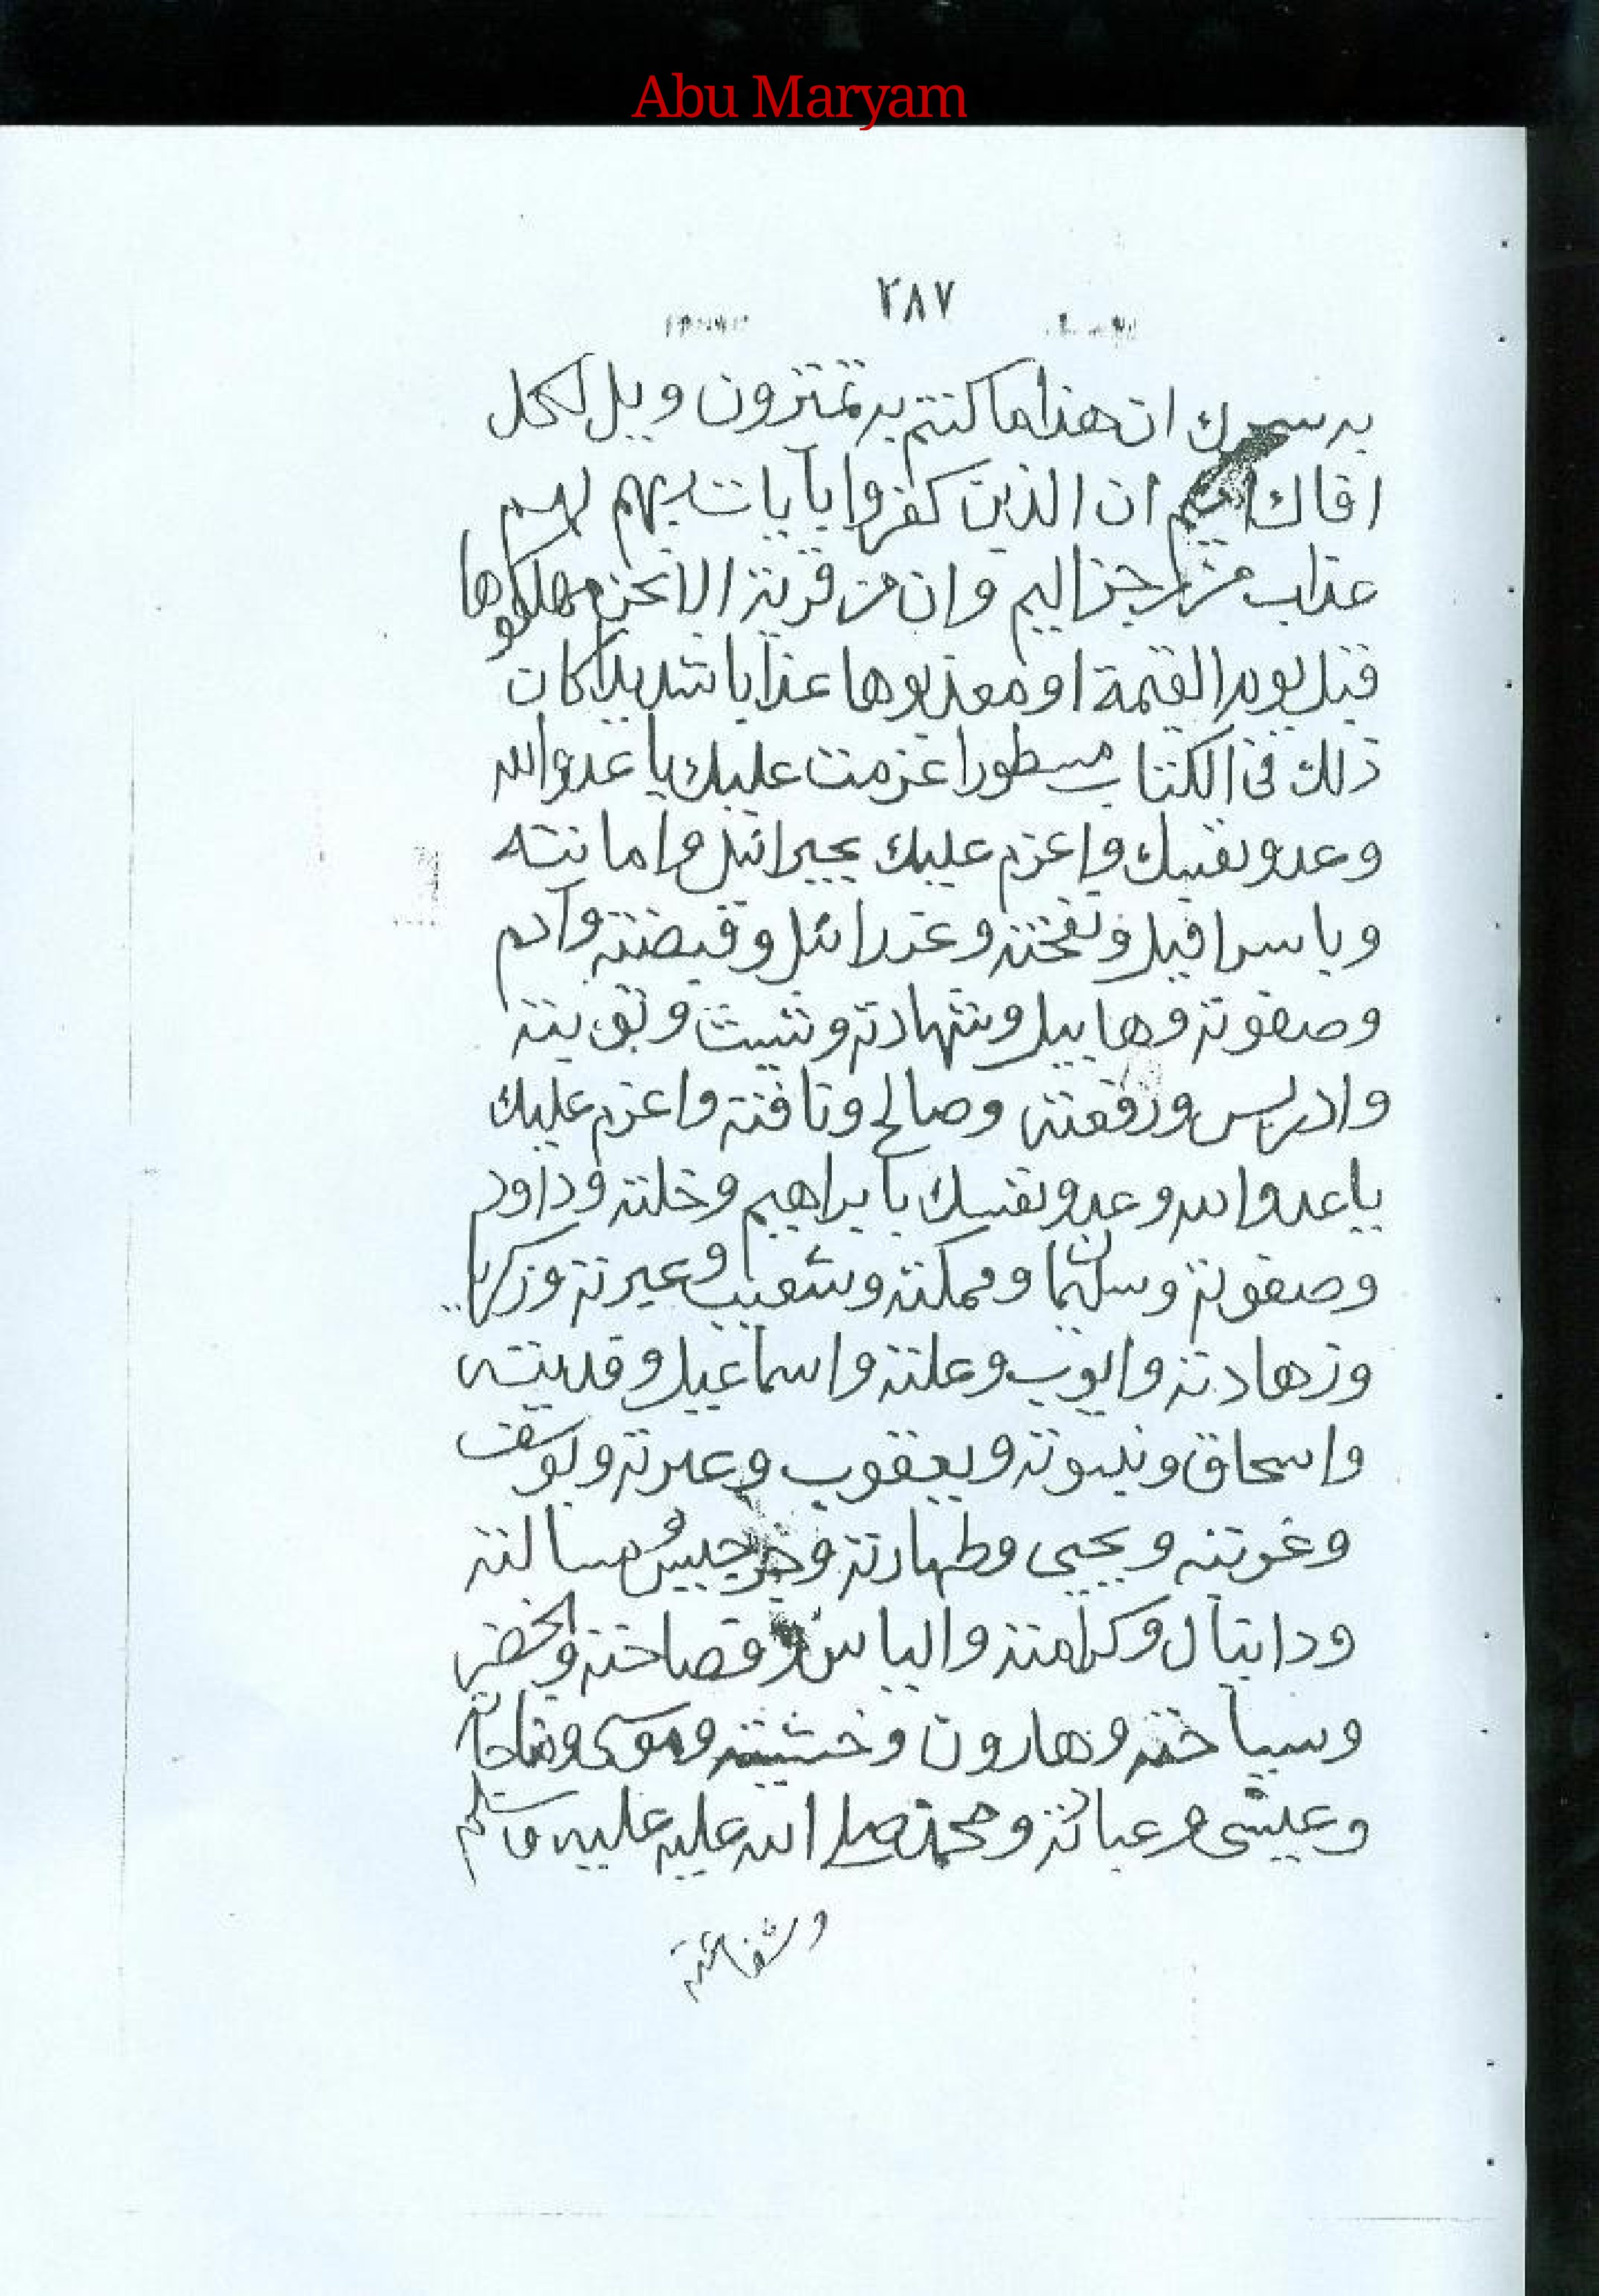 Abu Maryam
٢٨٧
ان هذا ما كنتم به تمترون ويل لكل
افاك اثيم ان الذين كفروا بآيات ربهم لهم
عذاب من رجز اليم وان من قرية الا نحن مهلكوها
قبل يوم القيمة او معذبوها عذابا شديدا كان
ذلك فى الكتاب مسطورا عزمت عليك يا عدو الله
وعدو نفسك واعزم عليك بجبرائيل وامانته
وباسرافيل ونفخته وعزرائيل وقبضته وآدم
وصفوته وهابيل وشهادته وشيث
وادريس ورفعته وصالح وناقته واعزم عليك
يا عدو الله وعدو نفسك بابراهيم وخلته وداود
وصفوته وسليمان ومملكته وشعيب وزكريا
وزهادته وايوب وعلته واسماعيل وفديته
واسحاق ونبوته ويعقوب وعبرته ويوسف
وغربته ويحيى وطهارته وجرجيس ورسالته
ودانيال وكرامته والياس وفصاحته والخضر
وسياحته وهارون وخشيته وموسى ومناجاته
وعيسى ومحمد صلى الله عليه عليه وسلم
وشفاعته